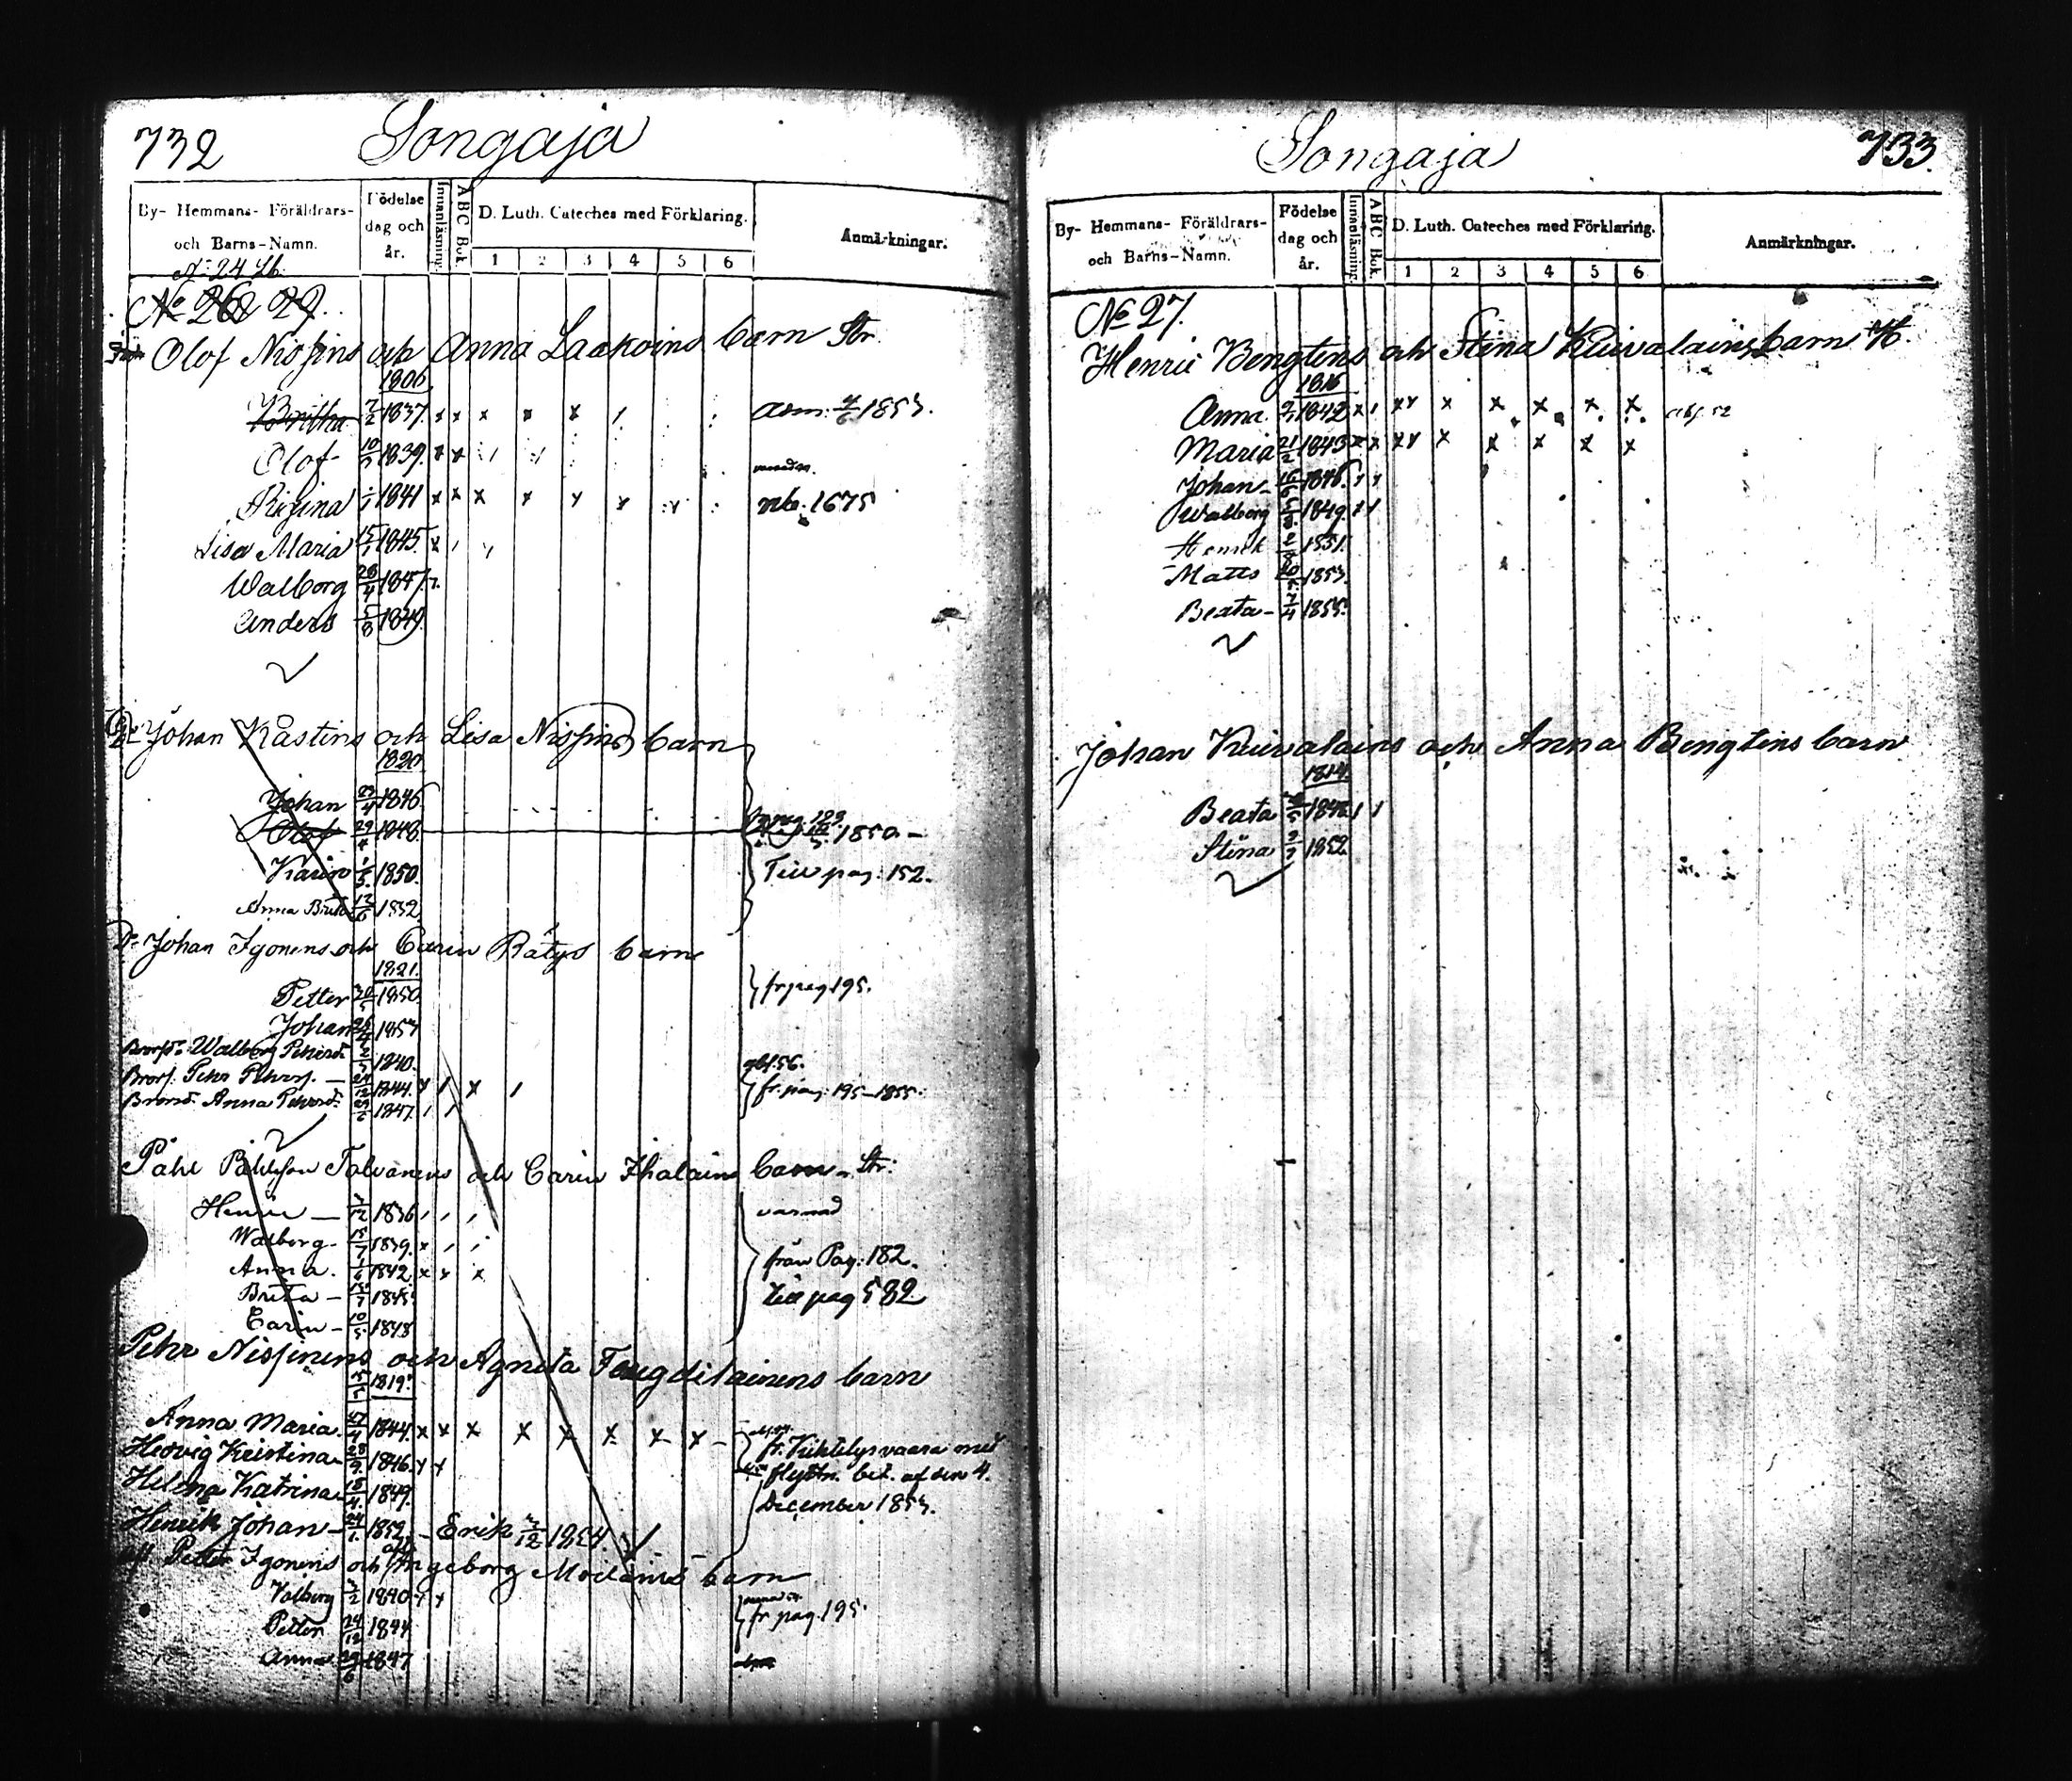 732 Songaja
By- Hemmans- Föräldrars- och Barns-Namn.
Födelse dag och år.
Innanläsning.
ABC Bok.
D. Luth. Cateches med Förklaring.
1 2 3 4 5 6
Anmärkningar.
No 24 Lb.
Olof Nissins och Anna Laakoins barn Str.
1806
Britha 7/2 1837. x x x x x adm: 1853.
Olof 1839. x x
Risina 1841 x x x x x x nb. 1675
Lisa Maria 5/1 1845. x
Walborg 28/4 1847.
Anders 5/8 1849.
Johan Kåstins och Lisa Nissins barn
1820
Johan 1846
Olof 29/4 1848. 1850.
Karin 1850. Till pag: 152.
Anna Brita 1852
Johan Igonens och Carin Rätys barn
1821.
Petter 1850 fr pag 195.
Johan 1853
Brorsd. Walborg Petersd. 1840. abs. 56.
Brors. Pehr Petters. 24/12 1844. fr. pag: 195-1855.
Brorsd. Anna Petersd. 1847.
Påhl Påhlsson Talvanens och Carin Ihalains barn Str.
Henric 1836
Walborg 1839. x från Pag: 182.
Anna. 1842 x x x
Brita 1845. till pag 582
Carin 10/5 1848
Pehr Nissinens och Agneta Taugdilainens barn
1819.
Anna Maria. 1844. x x x x x x x x
Hedvig Kristina 28/9 1846. fr. Kiihtelysvaara med
flyttn. bet. af den 4.
Helena Katrina 1849. December 1853.
Henrik Johan 1852. Erik 1854.
Petter Igonens och Ingeborg Moilanens barn
Valborg 1840.
Petter 24/12 1844 fr. pag. 195.
Anna 1847
Songaja 733.
By- Hemmans- Föräldrars- och Barns-Namn.
Födelse dag och år.
Innanläsning.
ABC Bok.
D. Luth. Cateches med Förklaring.
1 2 3 4 5 6
Anmärkningar.
No 27.
Henric Bengtens och Stina Kuivalains barn
1816
Anna. 1842 x x x x x x
Maria 21/2 1843 x x x x x x
Johan 1846.
Walborg 1849.
Henrik 1851.
Matts 1853.
Beata 7/4 1855.
Johan Kuivalains och Anna Bengtens barn
1814.
Beata 1848
Stina 1852